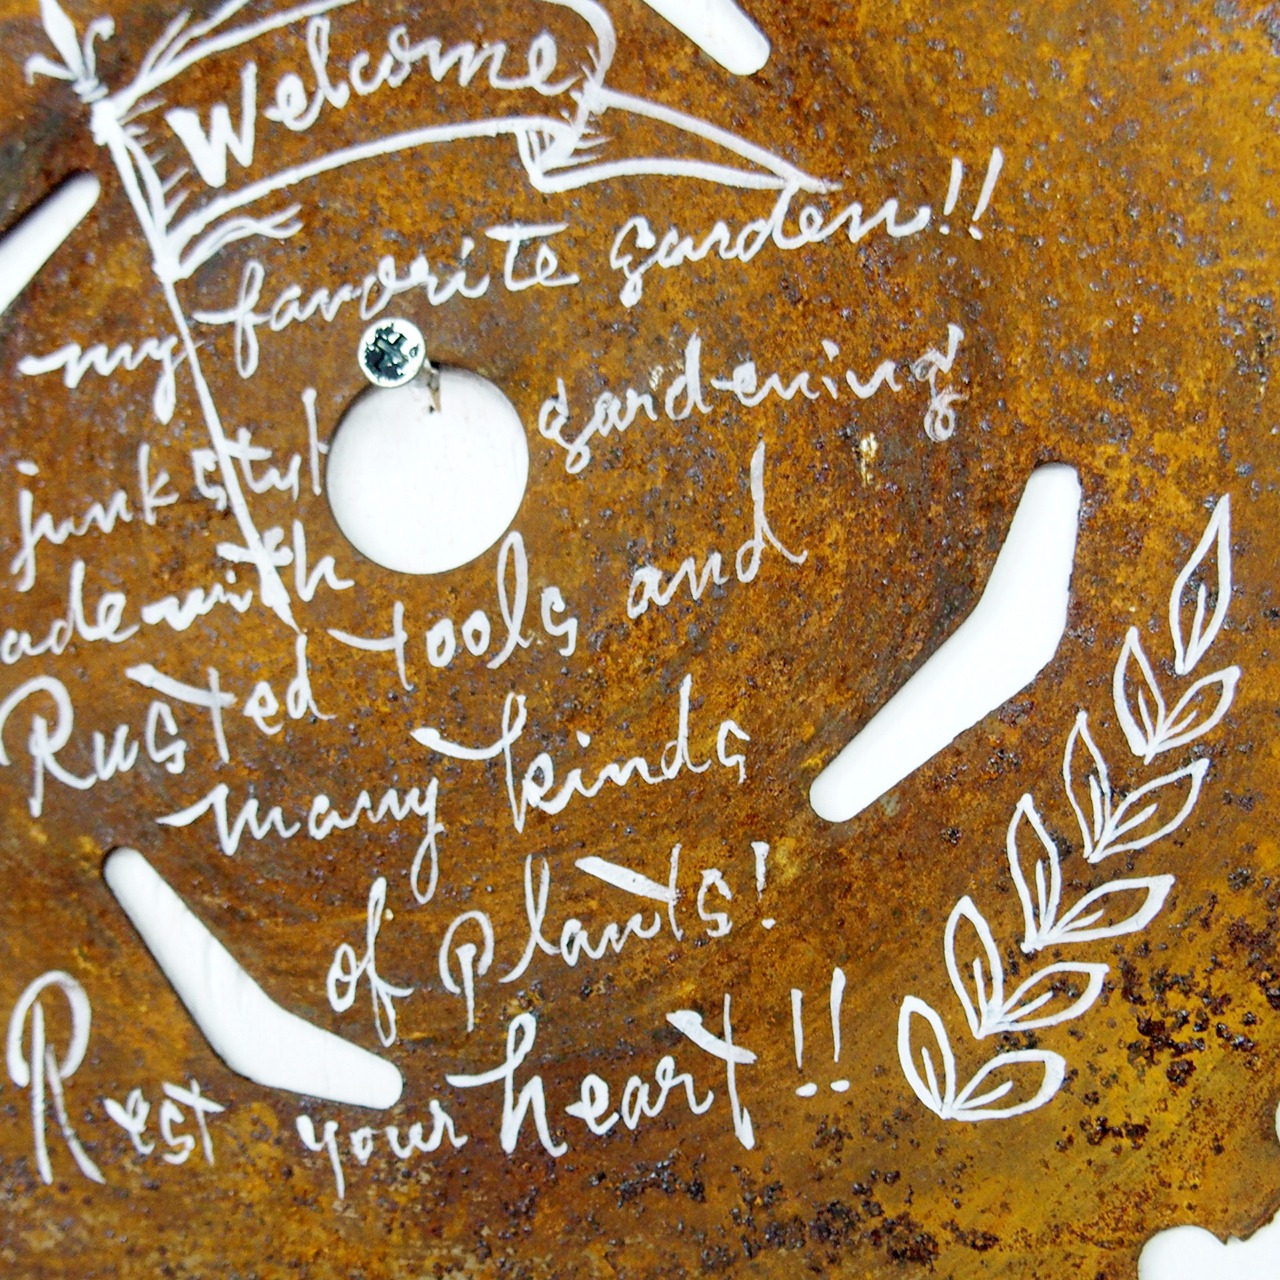 Welcome
my favorite garden!!
junk styl gardening
ade with
Rusted tools and
many kinds
of plants!
Rest your heart!!